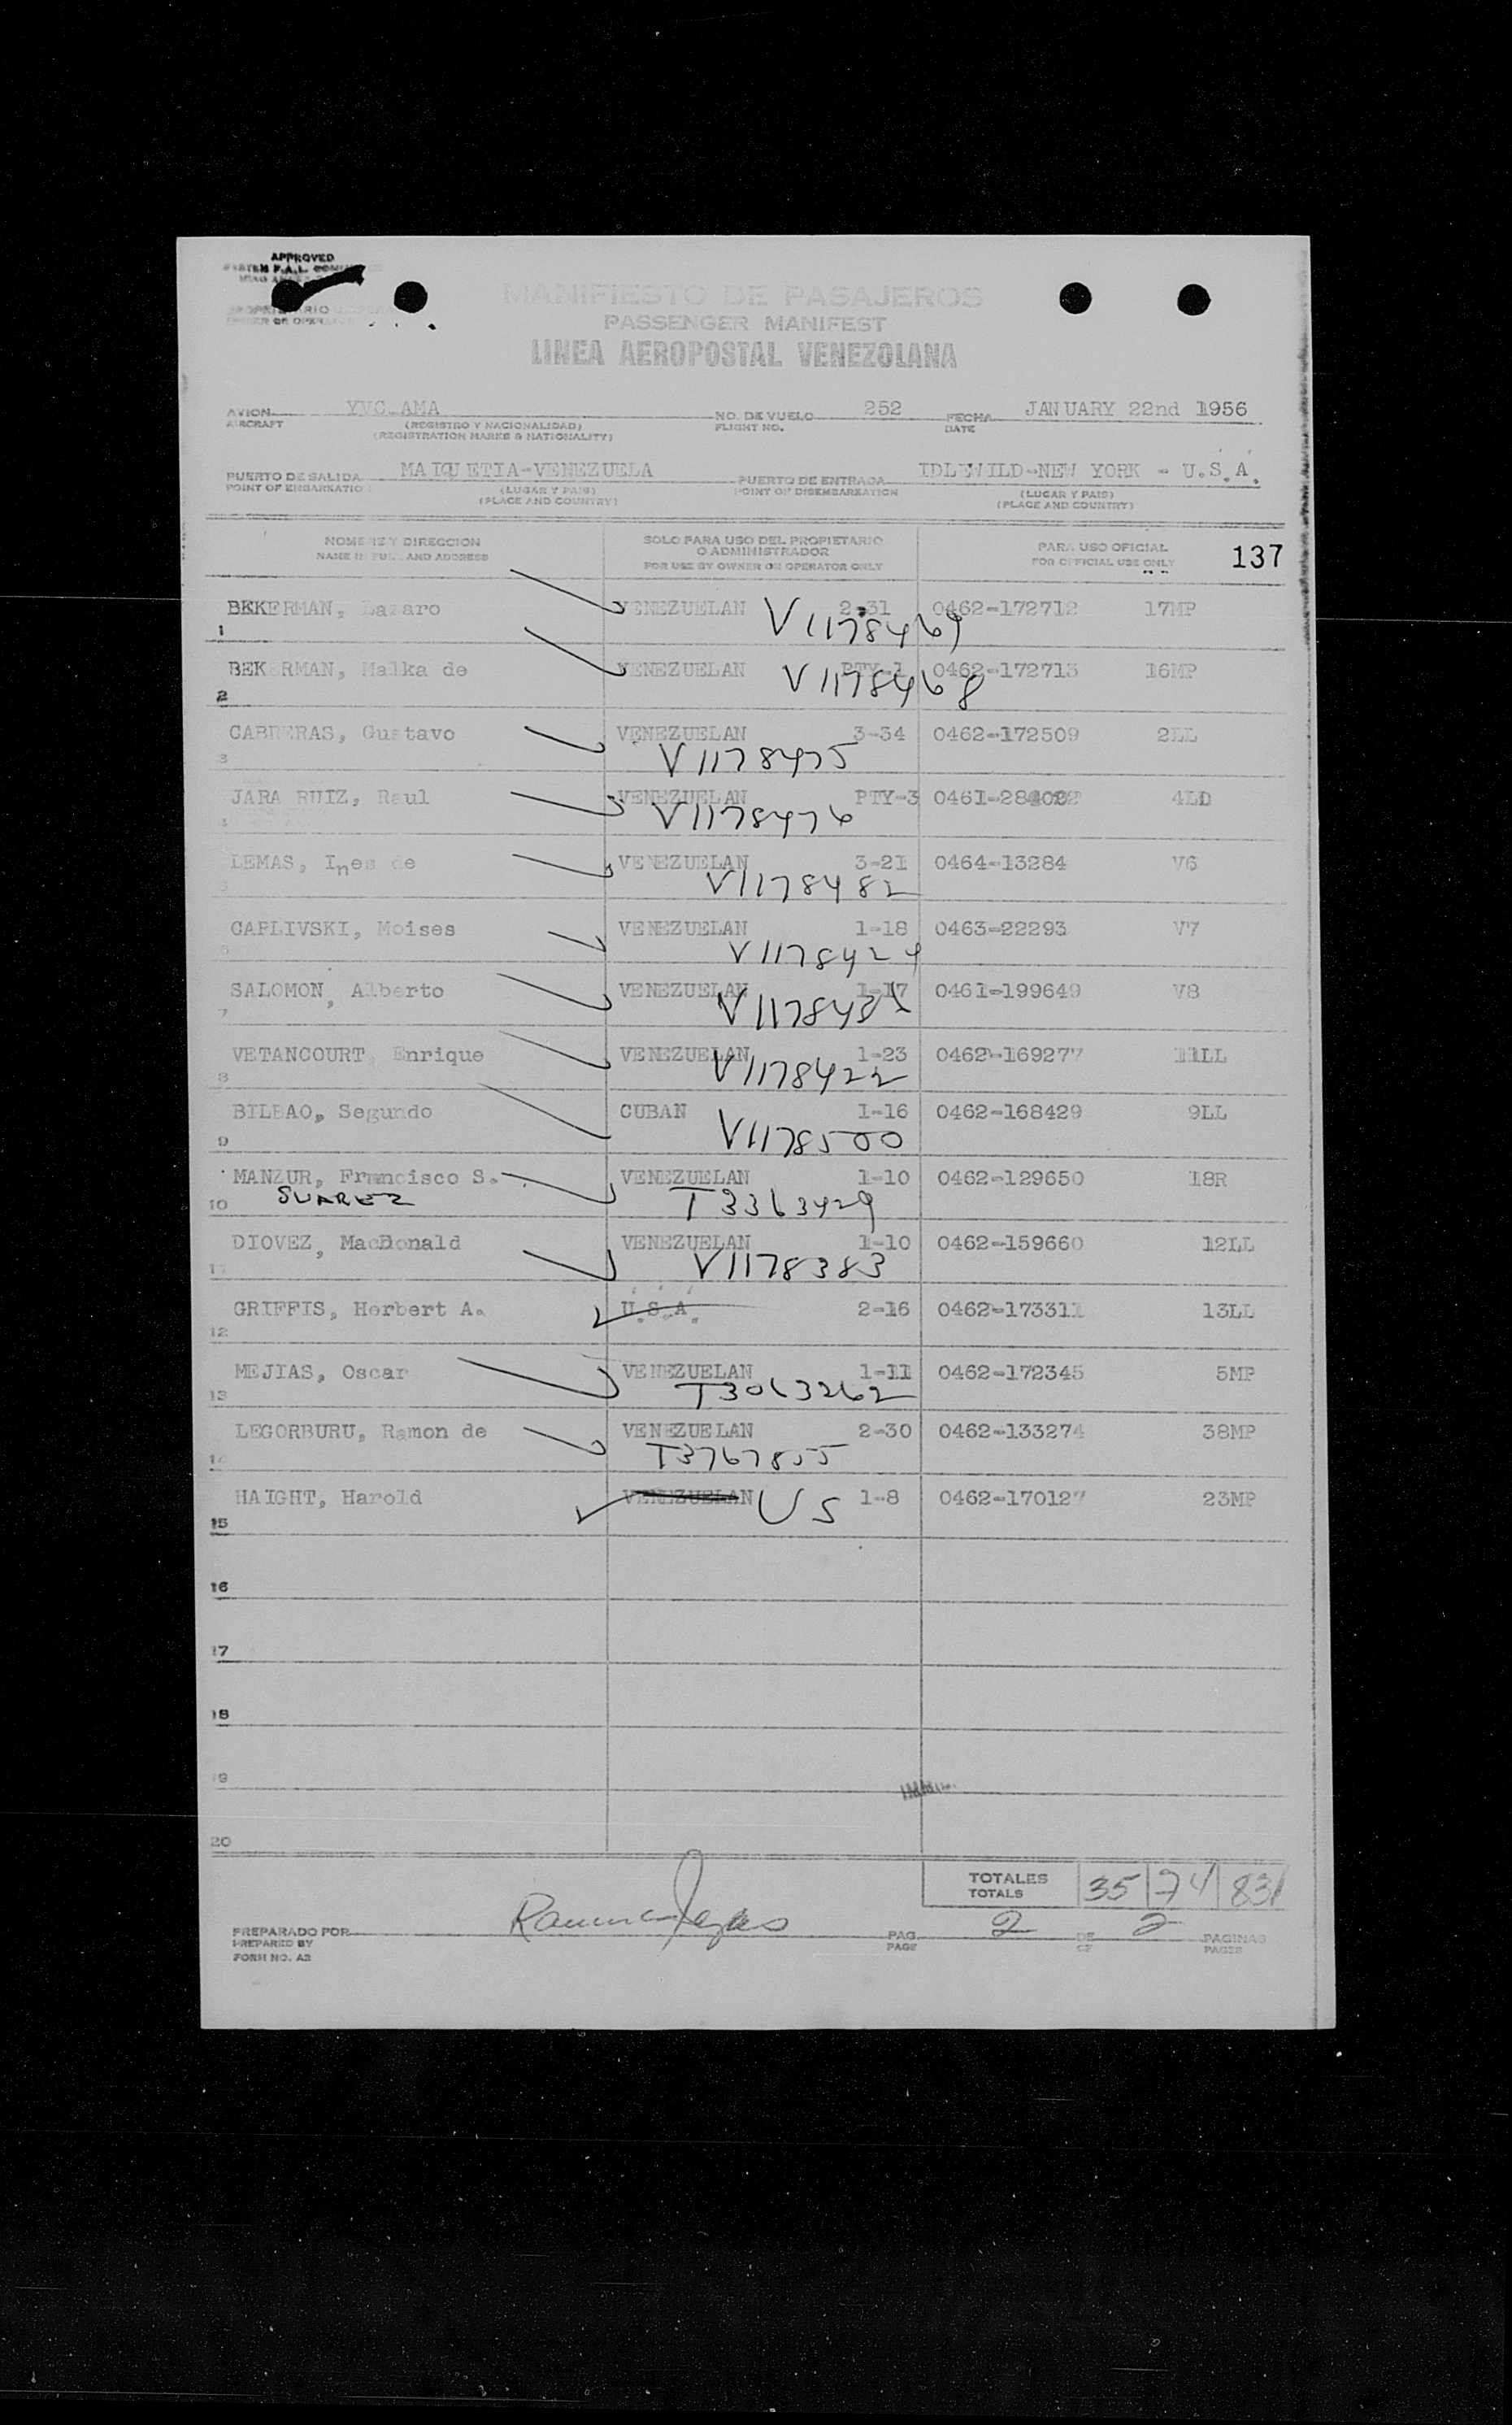 APPROVED
MANIFIESTO DE PASAJEROS
PASSENGER MANIFEST
LINEA AEROPOSTAL VENEZOLANA
AVION YVC AMA NO. DE VUELO 252 FECHA JANUARY 22nd 1956
AIRCRAFT (REGISTRO Y NACIONALIDAD) FLIGHT NO. DATE
(REGISTRATION MARKS & NATIONALITY)
PUERTO DE SALIDA MAIQUETIA-VENEZUELA PUERTO DE ENTRADA IDLEWILD-NEW YORK - U.S.A.
POINT OF EMBARKATION (LUGAR Y PAIS) POINT OF DISEMBARKATION (LUGAR Y PAIS)
(PLACE AND COUNTRY) (PLACE AND COUNTRY)
NOMBRE Y DIRECCION SOLO PARA USO DEL PROPIETARIO PARA USO OFICIAL 137
NAME IN FULL AND ADDRESS O ADMINISTRADOR FOR OFFICIAL USE ONLY
FOR USE BY OWNER OR OPERATOR ONLY
BEKERMAN, Lazaro VENEZUELAN 2-31 0462-172712 17MP
1 V1178469
BEKERMAN, Malka de VENEZUELAN PTY-1 0462-172713 16MP
2 V1178468
CABRERAS, Gustavo VENEZUELAN 3-34 0462-172509 2LL
3 V1178475
JARA RUIZ, Raul VENEZUELAN PTY-3 4LD
4 V1178476
LEMAS, Ines de VENEZUELAN 3-21 0464-13284 V6
5 V1178482
CAPLIVSKI, Moises VENEZUELAN 1-18 0463-22293 V7
6 V1178424
SALOMON, Alberto VENEZUELAN 1-17 0461-199649 V8
7
VETANCOURT, Enrique VENEZUELAN 1-23 0462-169277 11LL
8 V1178422
BILBAO, Segundo CUBAN 1-16 0462-168429 9LL
9 V1178500
MANZUR, Francisco S. VENEZUELAN 1-10 0462-129650 18R
10 SUAREZ T3363429
DIOVEZ, MacDonald VENEZUELAN 1-10 0462-159660 12LL
11 V1178383
GRIFFIS, Herbert A. U.S.A. 2-16 0462-173311 13LL
12
MEJIAS, Oscar VENEZUELAN 1-11 0462-172345 5MP
13 T3063262
LEGORBURU, Ramon de VENEZUELAN 2-30 0462-133274 38MP
14 T3767855
HAIGHT, Harold VENEZUELAN US 1-8 0462-170127 23MP
15
16
17
18
19
20
TOTALES 35 74 831
TOTALS
PREPARADO POR PAG. 2 DE 2 PAGINAS
PREPARED BY PAGE OF PAGES
FORM NO. A2